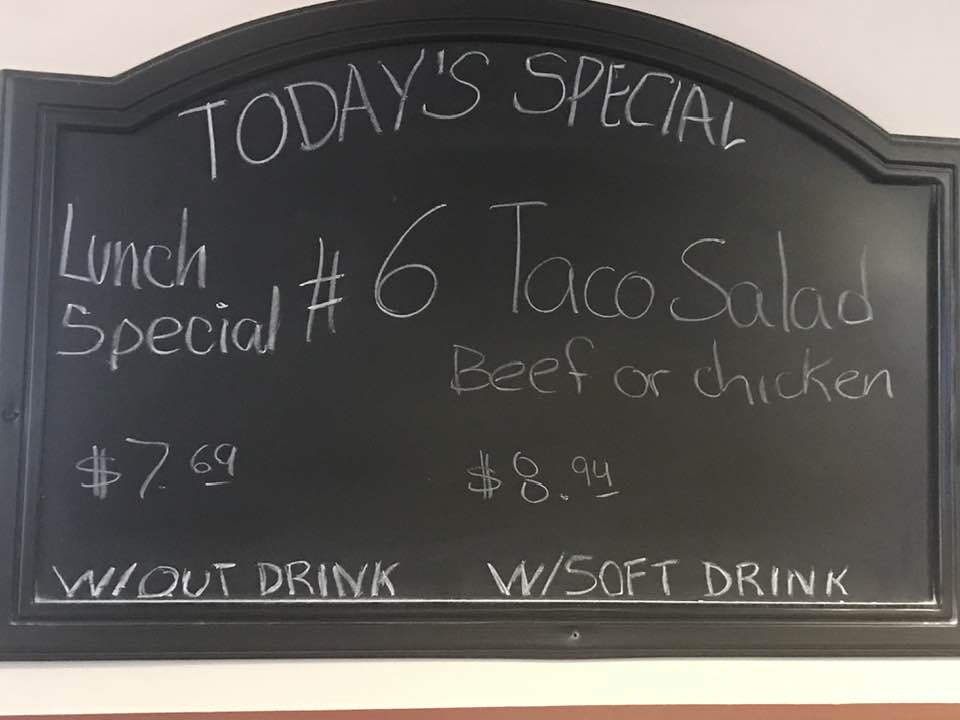 TODAY'S SPECIAL
Lunch Special #6 Taco Salad
Beef or chicken
$7.69 $8.94
W/OUT DRINK W/SOFT DRINK